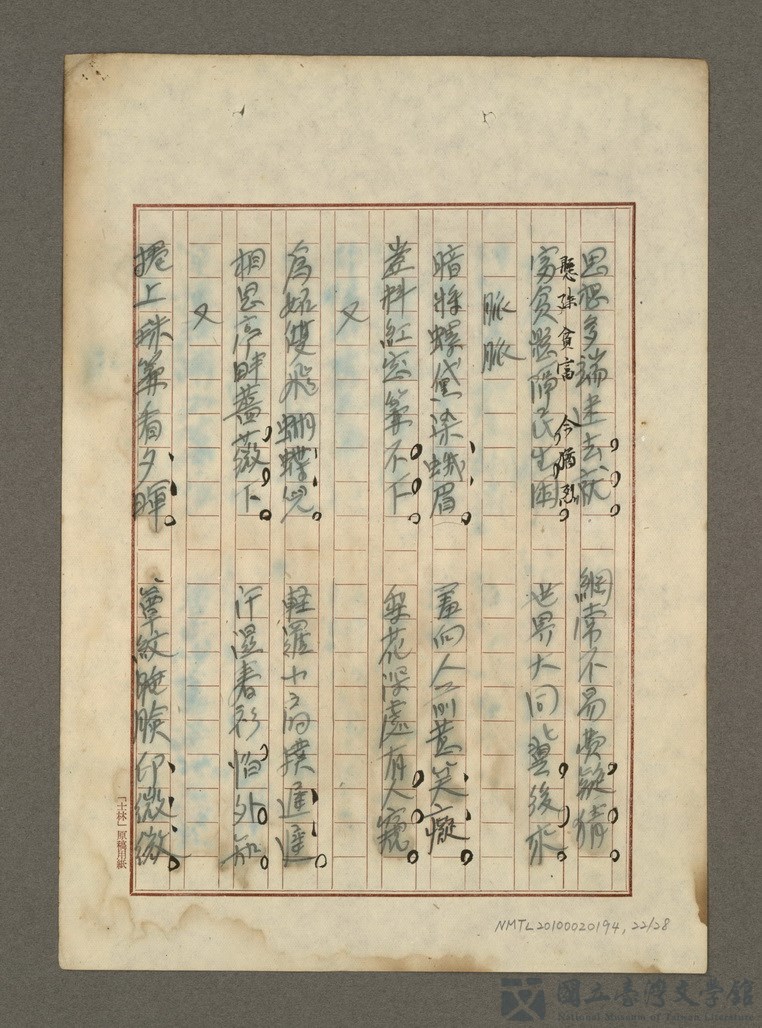 思想多端迷去就 綱常不易費疑猜
懸殊貧富今猶烈
貧富懸殊民生困 世界大同此翌後求
脈脈
暗將螺黛染蛾眉 羞向人前帶笑癡
豈料紅窓簾不下 梨花深處有人窺
又
為好雙飛蝴蝶幽 輕羅小扇撲遲遲
相思亭畔薔薇下 汗濕春衫怕外知
又
捲上珠簾看夕暉 簟紋腕臉印微微
「士林」原稿用紙
NMTL20100020194, 22/28
國立臺灣文學館
National Museum of Taiwan Literature